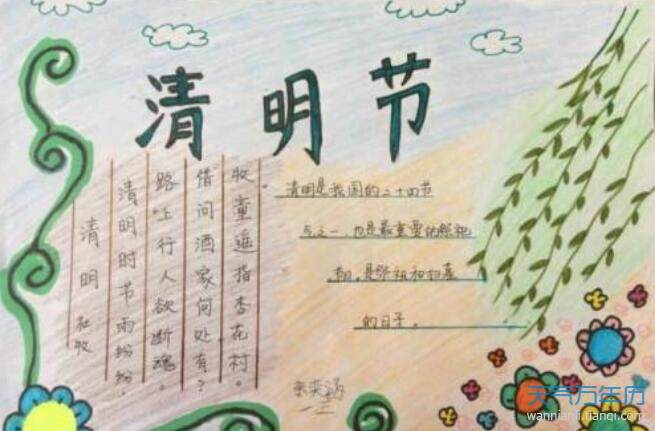 清明节
清明 杜牧
清明时节雨纷纷，
路上行人欲断魂。
借问酒家何处有？
牧童遥指杏花村。
清明是我国的二十四节
气之一，也是最重要的祭祀
是祭祖和扫墓
的日子。
天气万年历
wannianli.tianqi.com